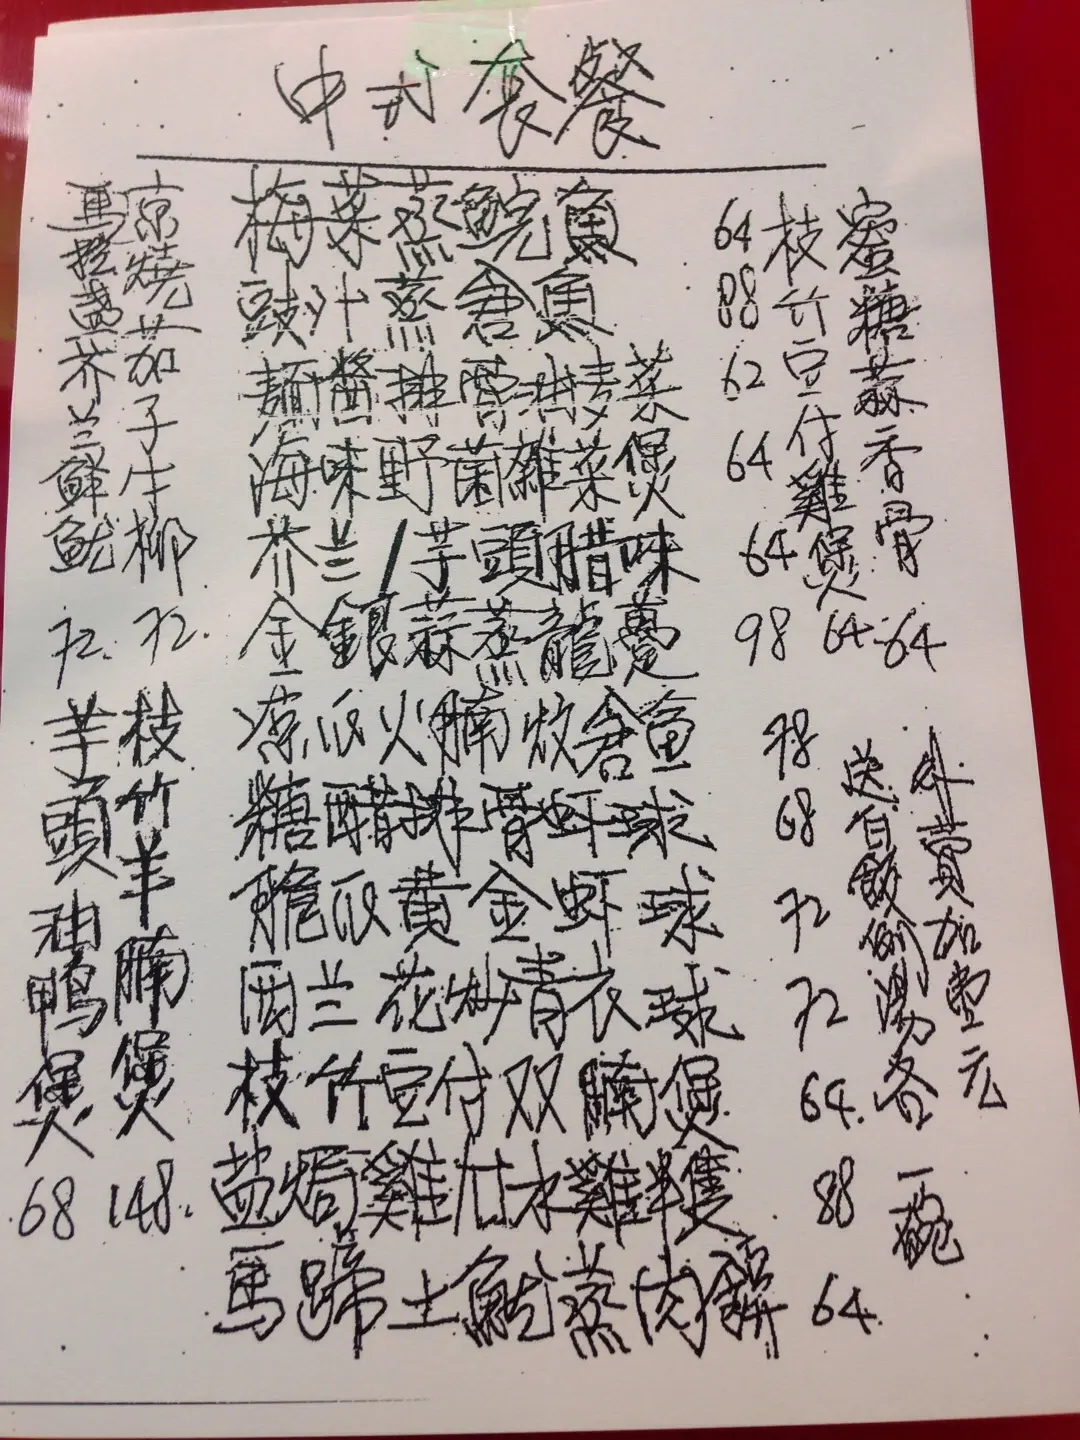 中式套餐
梅菜蒸鯇魚 64
豉汁蒸倉魚 88
麵醬排骨浸菜 62
海味野菌雜菜煲 64
芥兰/芋頭腊味 64
金銀蒜蒸龍躉 98
凉瓜火腩炆倉魚 78
糖醋排骨虾球 68
脆瓜黄金虾球 72
西兰花炒青衣球 72
枝竹豆付双腩煲 64
盐焗雞/甘水雞半隻 88
馬蹄土魷蒸肉餅 64
枝竹豆付雞煲 64
蜜糖蒜香骨 64
京燒茄子牛柳 72
馬拉盞芥兰鮮魷 72
枝竹羊腩煲 148
芋頭油鴨煲 68
外賣加壹元
送白飯例湯各一碗